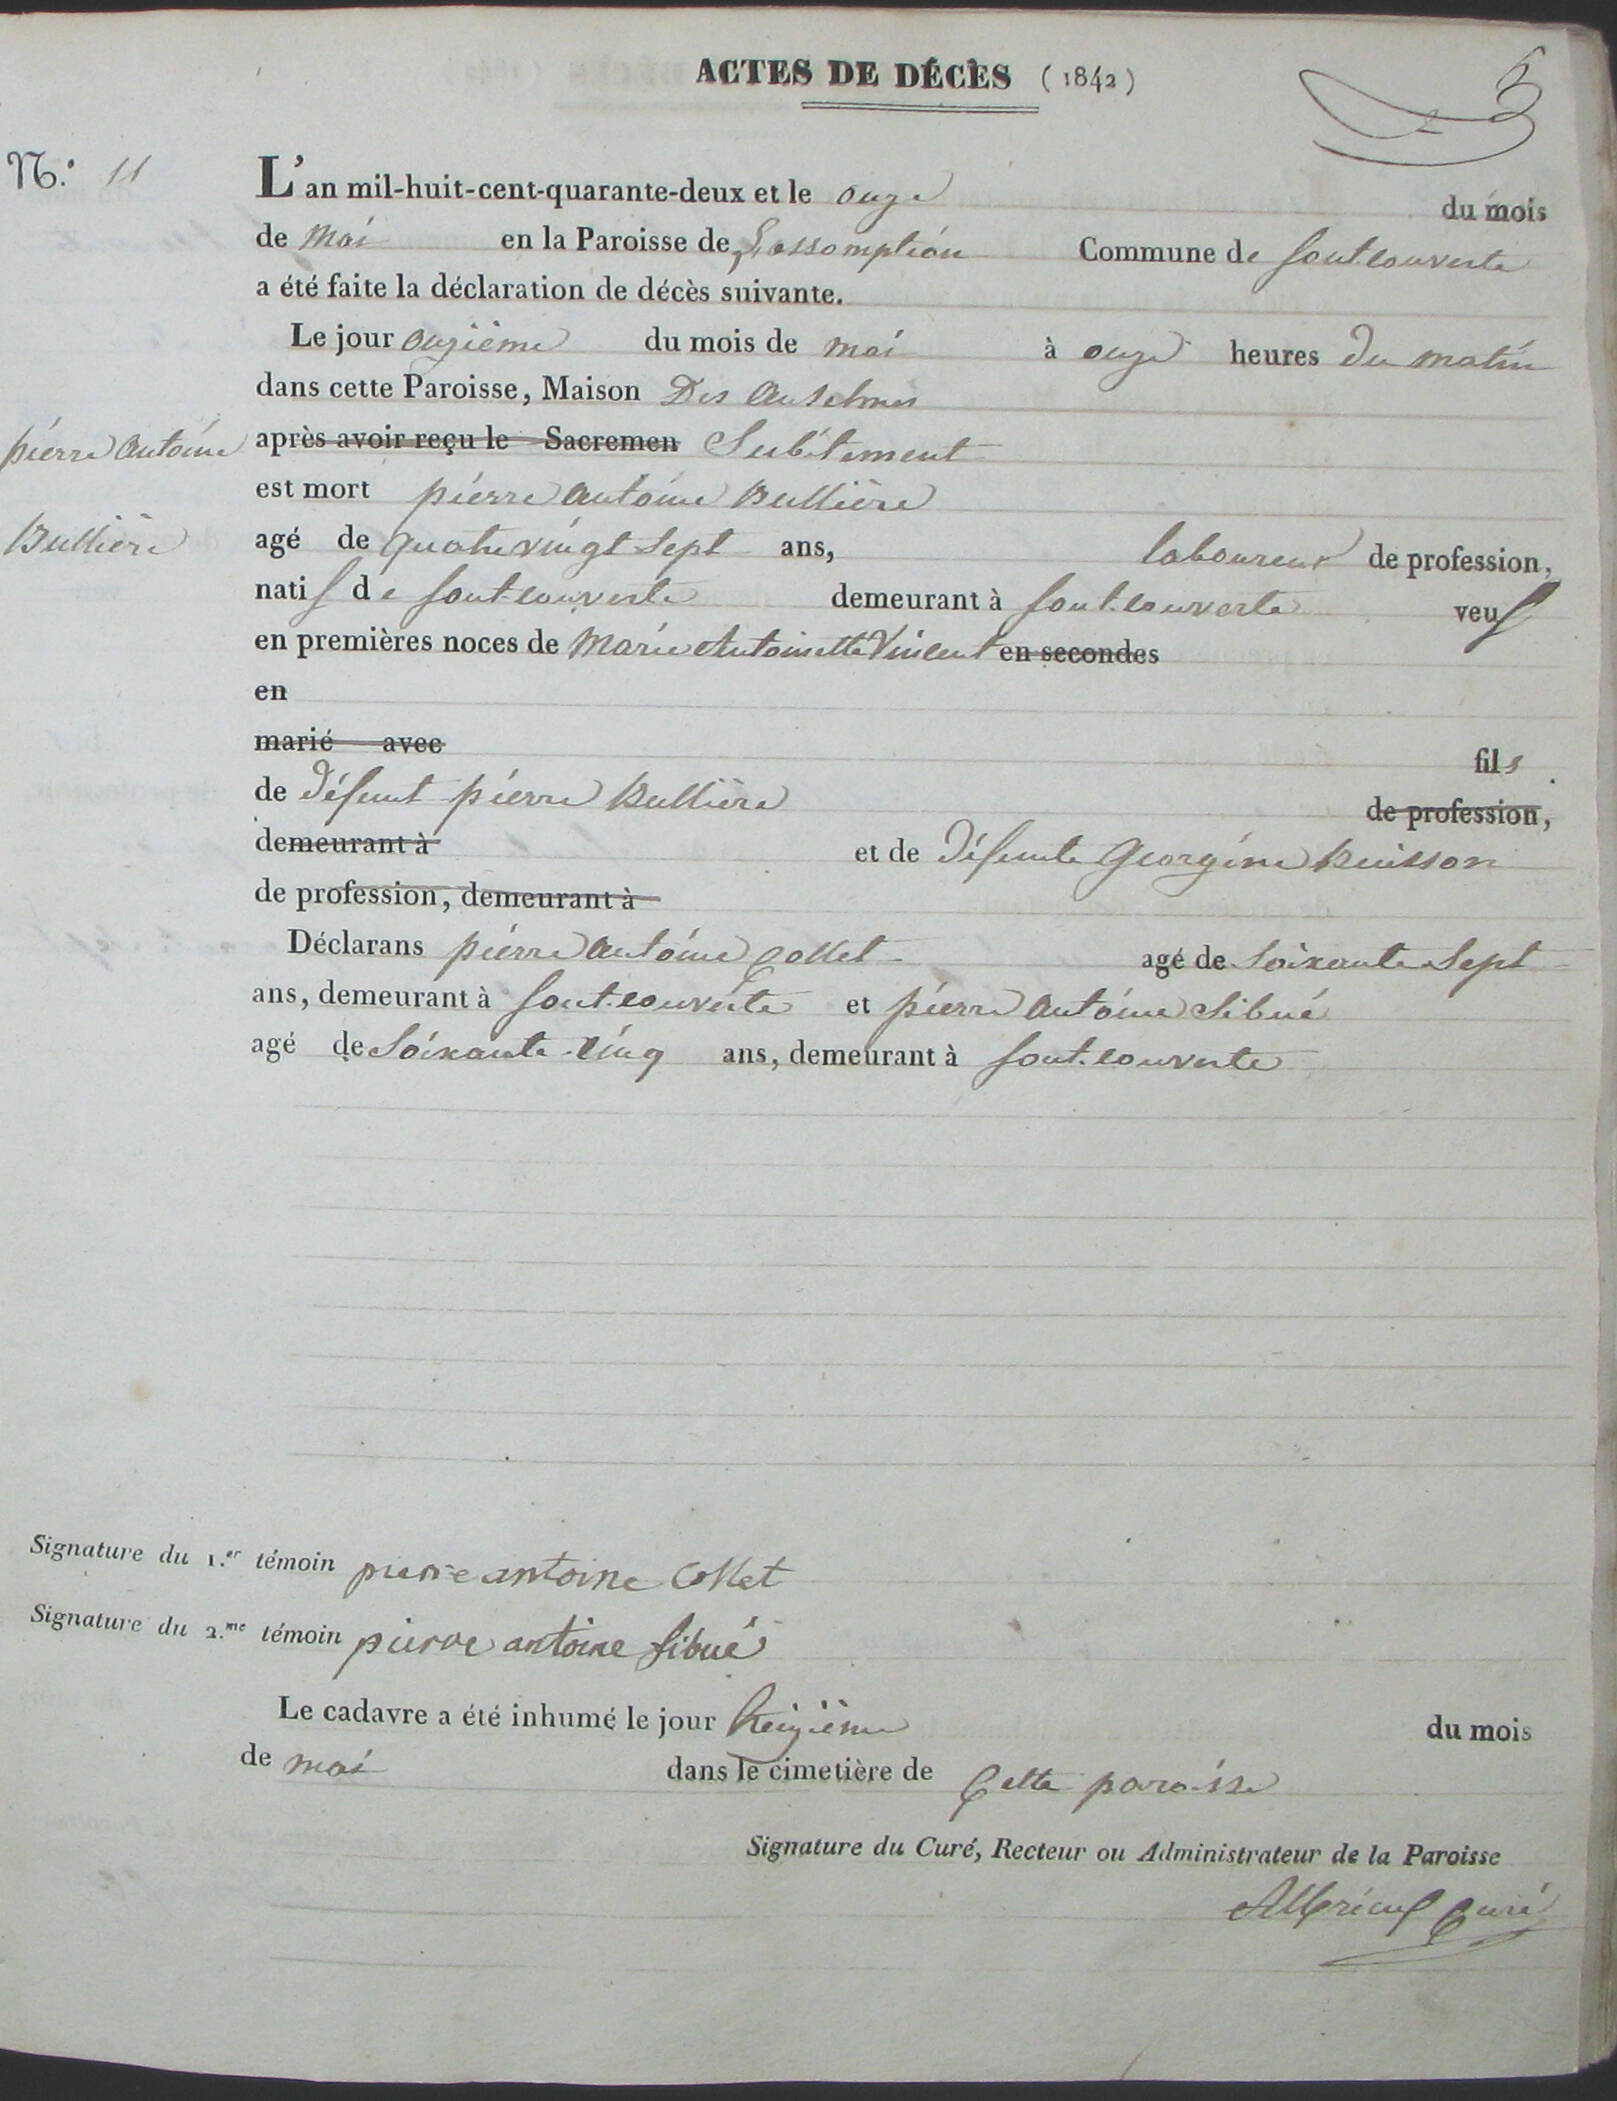 ACTES DE DÉCÈS (1842)
N.° 11
L'an mil-huit-cent-quarante-deux et le onze du mois
de Mai en la Paroisse de L'assomption Commune de font-couverte
a été faite la déclaration de décès suivante.
Le jour onzième du mois de mai à onze heures du matin
dans cette Paroisse, Maison Des Anselmes
pierre antoine après avoir reçu le Sacremen Subitement
est mort pierre antoine Bullière
Bullière agé de quatre vingt sept ans, laboureur de profession,
natif de font-couverte demeurant à font-couverte veuf
en premières noces de Marie Antoinette Vincent en secondes
en
marié avec fils
de défunt pierre Bullière de profession,
demeurant à et de défunte Georgine Buisson
de profession, demeurant à
Déclarans pierre antoine Collet agé de soixante sept
ans, demeurant à font-couverte et pierre antoine Sibué
agé de soixante-cinq ans, demeurant à font-couverte
Signature du 1.er témoin pierre antoine Collet
Signature du 2.me témoin pierre antoine Sibué
Le cadavre a été inhumé le jour treizième du mois
de mai dans le cimetière de Cette paroisse
Signature du Curé, Recteur ou Administrateur de la Paroisse
Curé